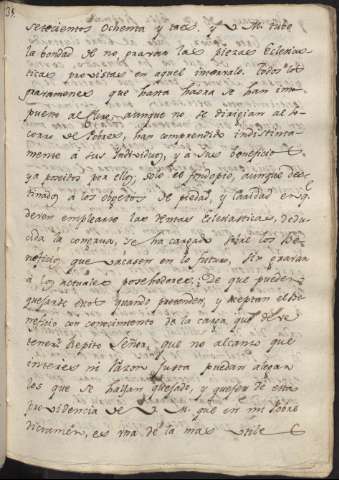 38.
setecientos ochenta y tres, y V. M. tubo
la bondad de no gravar las Piezas Eclesias
ticas provistas en aquel intervalo. Todos los
gravamenes que hasta haora se han im
puesto al Clero, aunque no se dirigian al so
corro de Pobres, han comprendido indistinta
mente a sus Individuos, y a sus beneficios
ya poseidos por ellos, solo el fondo pio, aunque des
tinado a los objetos de piedad, y caridad en q.
deven emplearse las Rentas Eclesiasticas, dedu
cida la congrua, se ha cargado sobre los Be
neficios que vacasen en lo futuro, sin gravar
a los actuales posehedores, de que pueden
quejarse estos quando pretenden, y aceptan el be
neficio con conocimiento de la carga que debe
tener? Repito Señor, que no alcanzo que
interes ni razon justa puedan alegar
los que se hallan quejado, y quejen de esta
providencia de V. M. que en mi pobre
dictamen, es una de las mas utiles